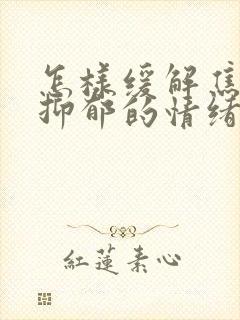 怎樣緩解焦
抑郁的情緒
紅蓮素心